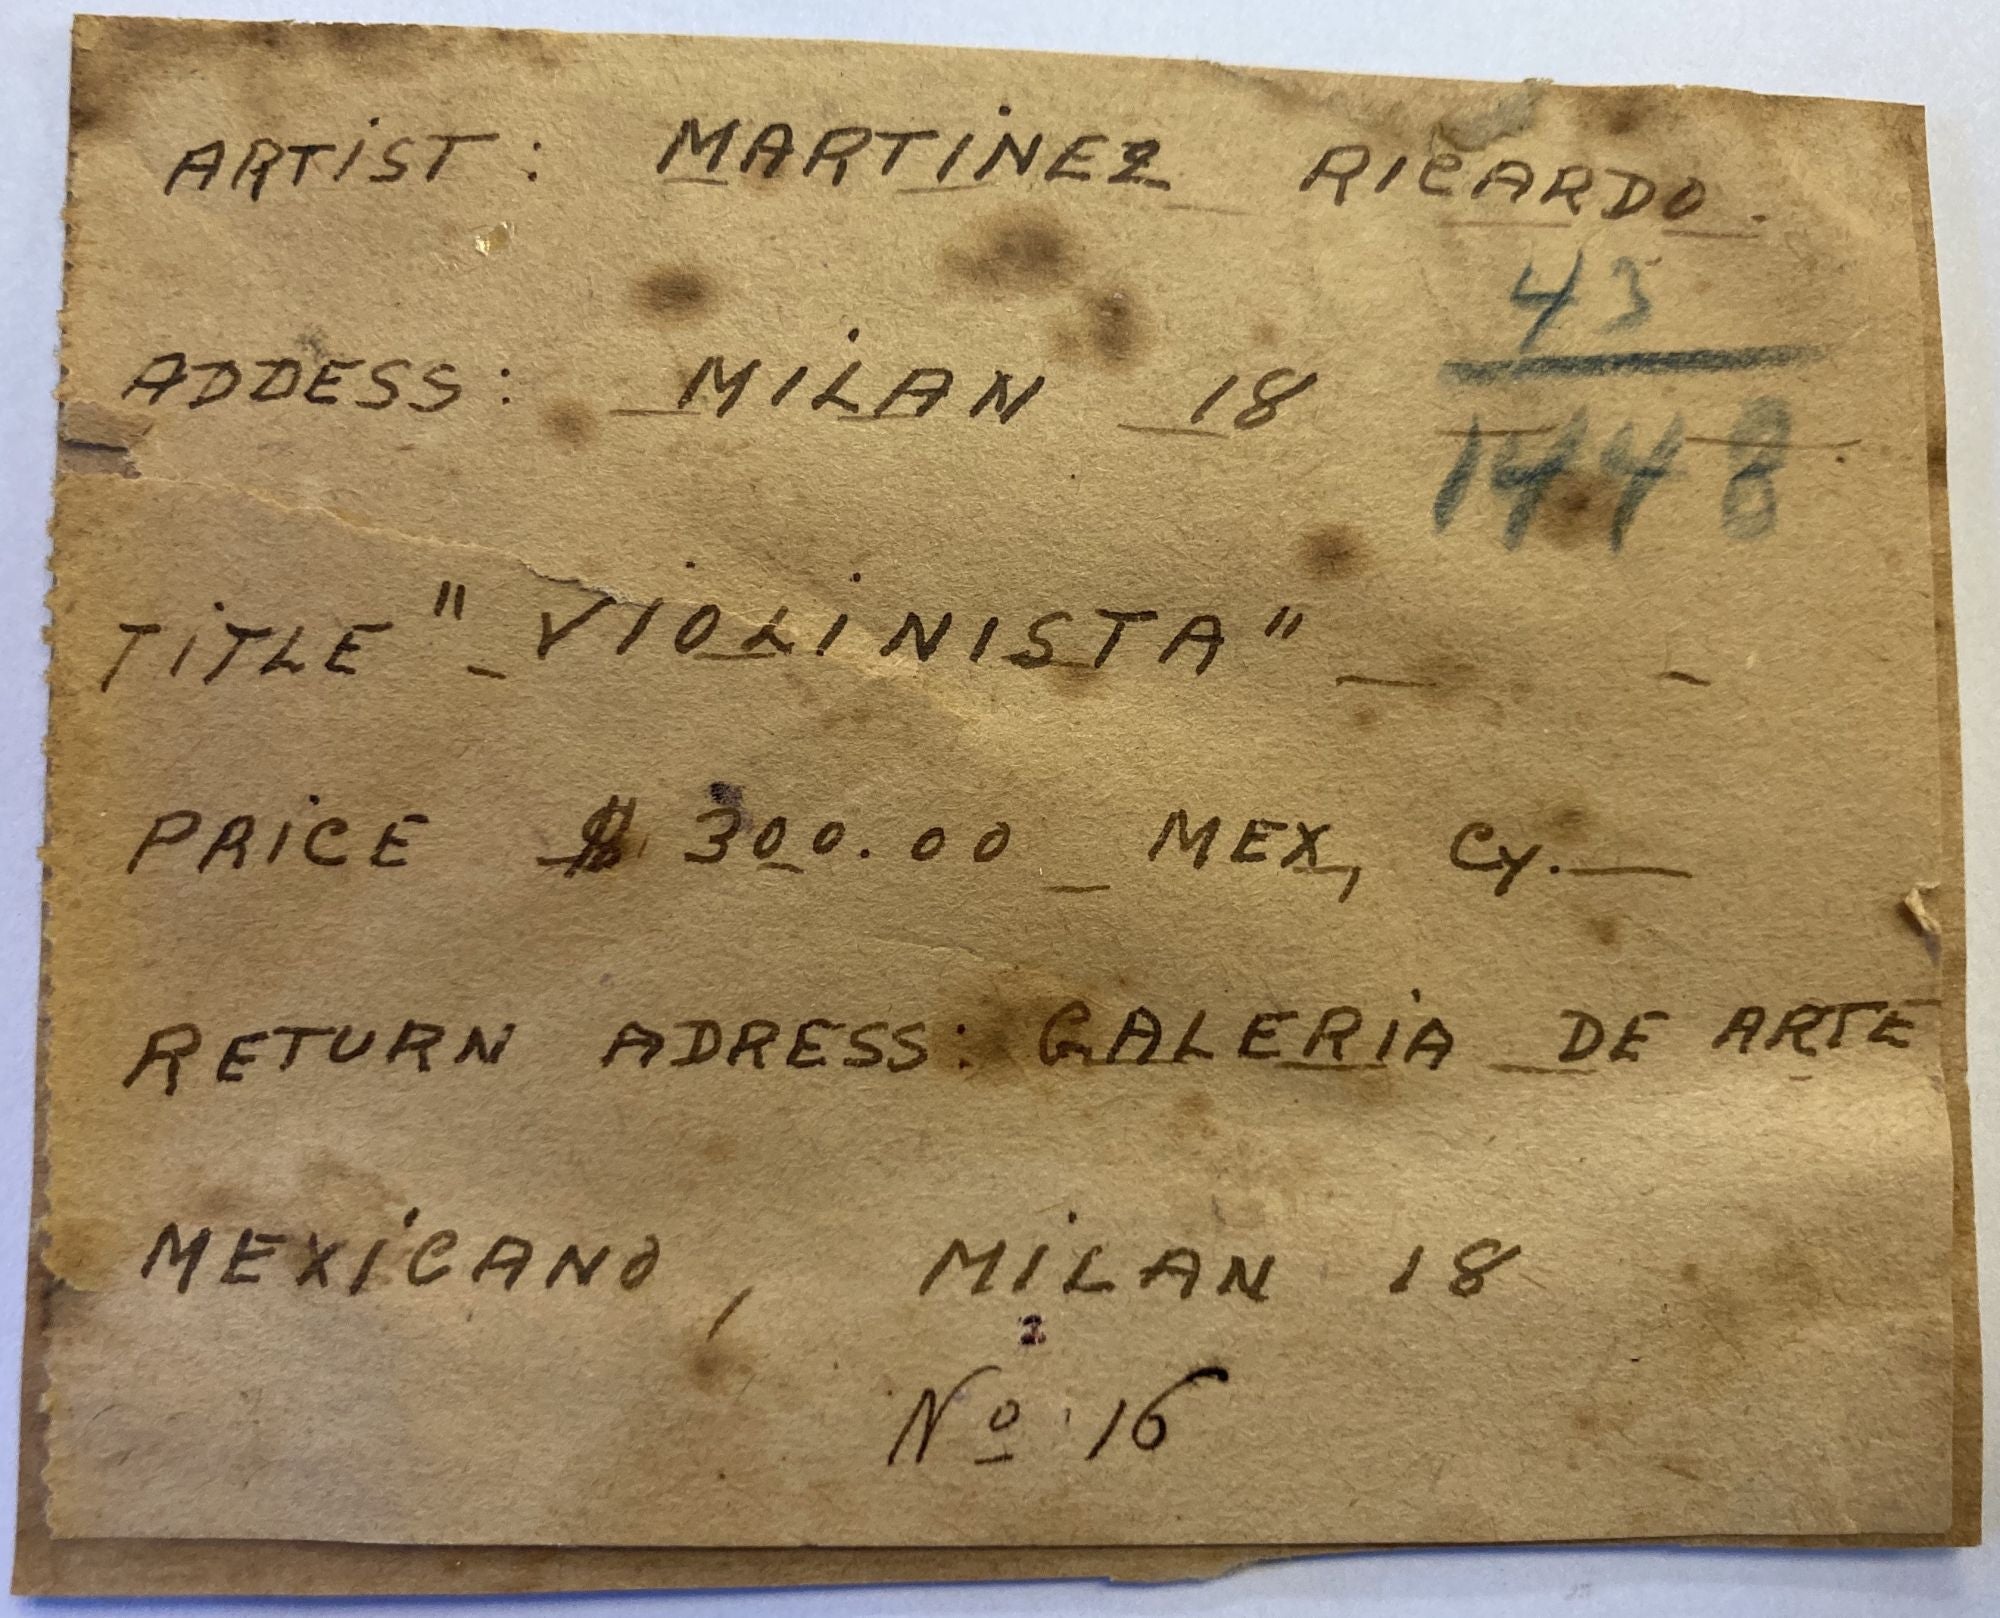 ARTIST: MARTINEZ RICARDO.
43
ADDESS: MILAN 18
1448
TITLE "VIOLINISTA"
PRICE $ 300.00 MEX, CY.
RETURN ADRESS: GALERIA DE ARTE
MEXICANO, MILAN 18
2
Nº 16